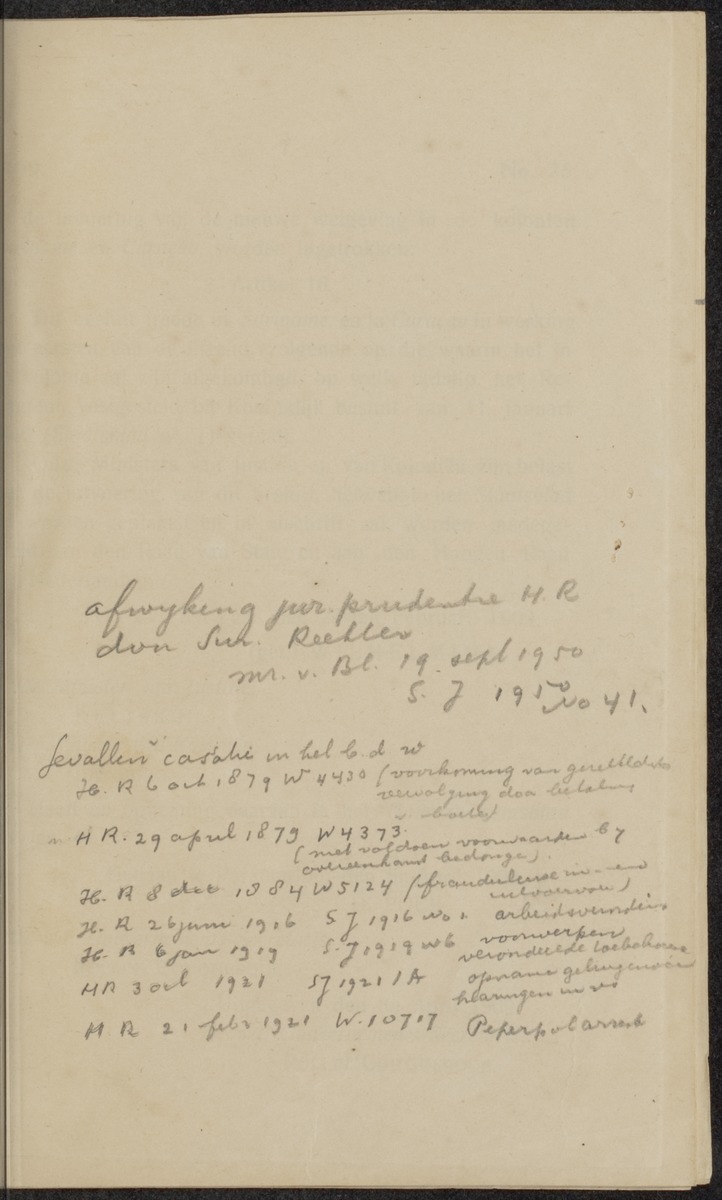 afwyking jur. prudentie H. R
door Sur. Rechter
mr. v. Bl. 19 sept 1950
S. J 1950 No 41.
Gevallen v casatie in het b. d w
H. R 6 oct 1879 W 4430 (voorkoming van gerechtelijke
vervolging door betaling
v boete)
H R. 29 april 1879 W 4373.
(niet voldoen voorwaarden by
overeenkomst bedongen).
H. R 8 dec 1884 W 5124 (frauduleuse in- en
uitvoer)
H. R 26 juni 1916 S J 1916 No 1. arbeidsverndin
H. R 6 jan 1919 S. J 1919 No 6 voorwerpen
veroordeelde toebehorende
H R 3 oct 1921 S J 1921 1 A opname getuigenver
klaringen in
H. R 21 febr 1921 W. 10717 Peperpot arrest